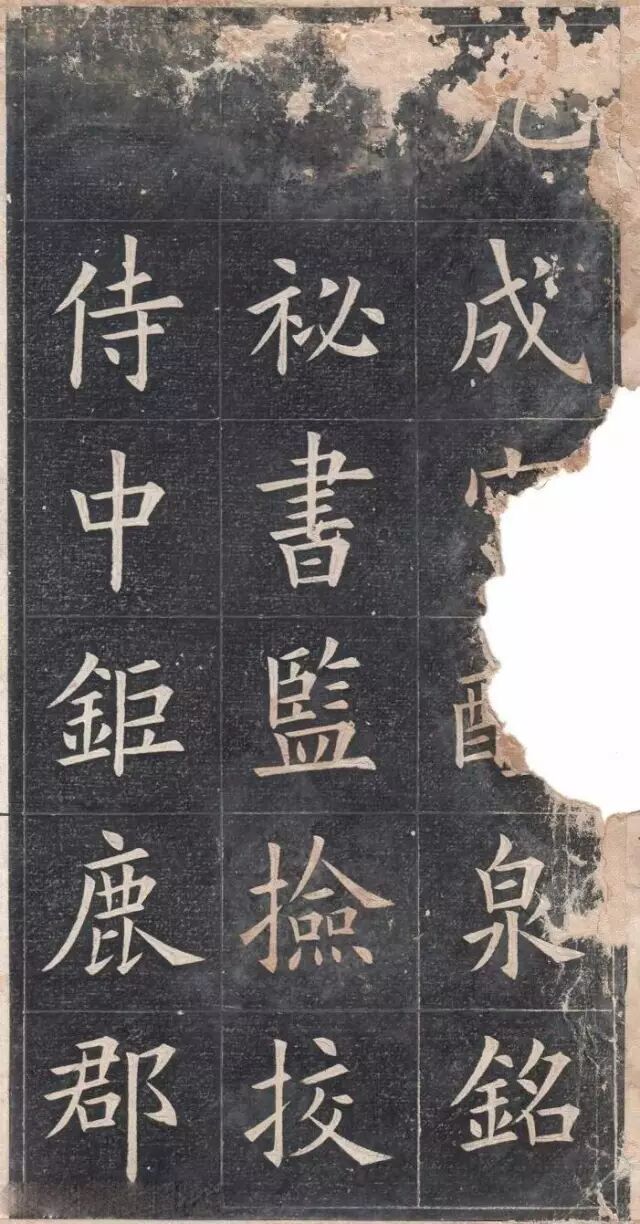 九成泉銘
祕書監撿挍
侍中鉅鹿郡